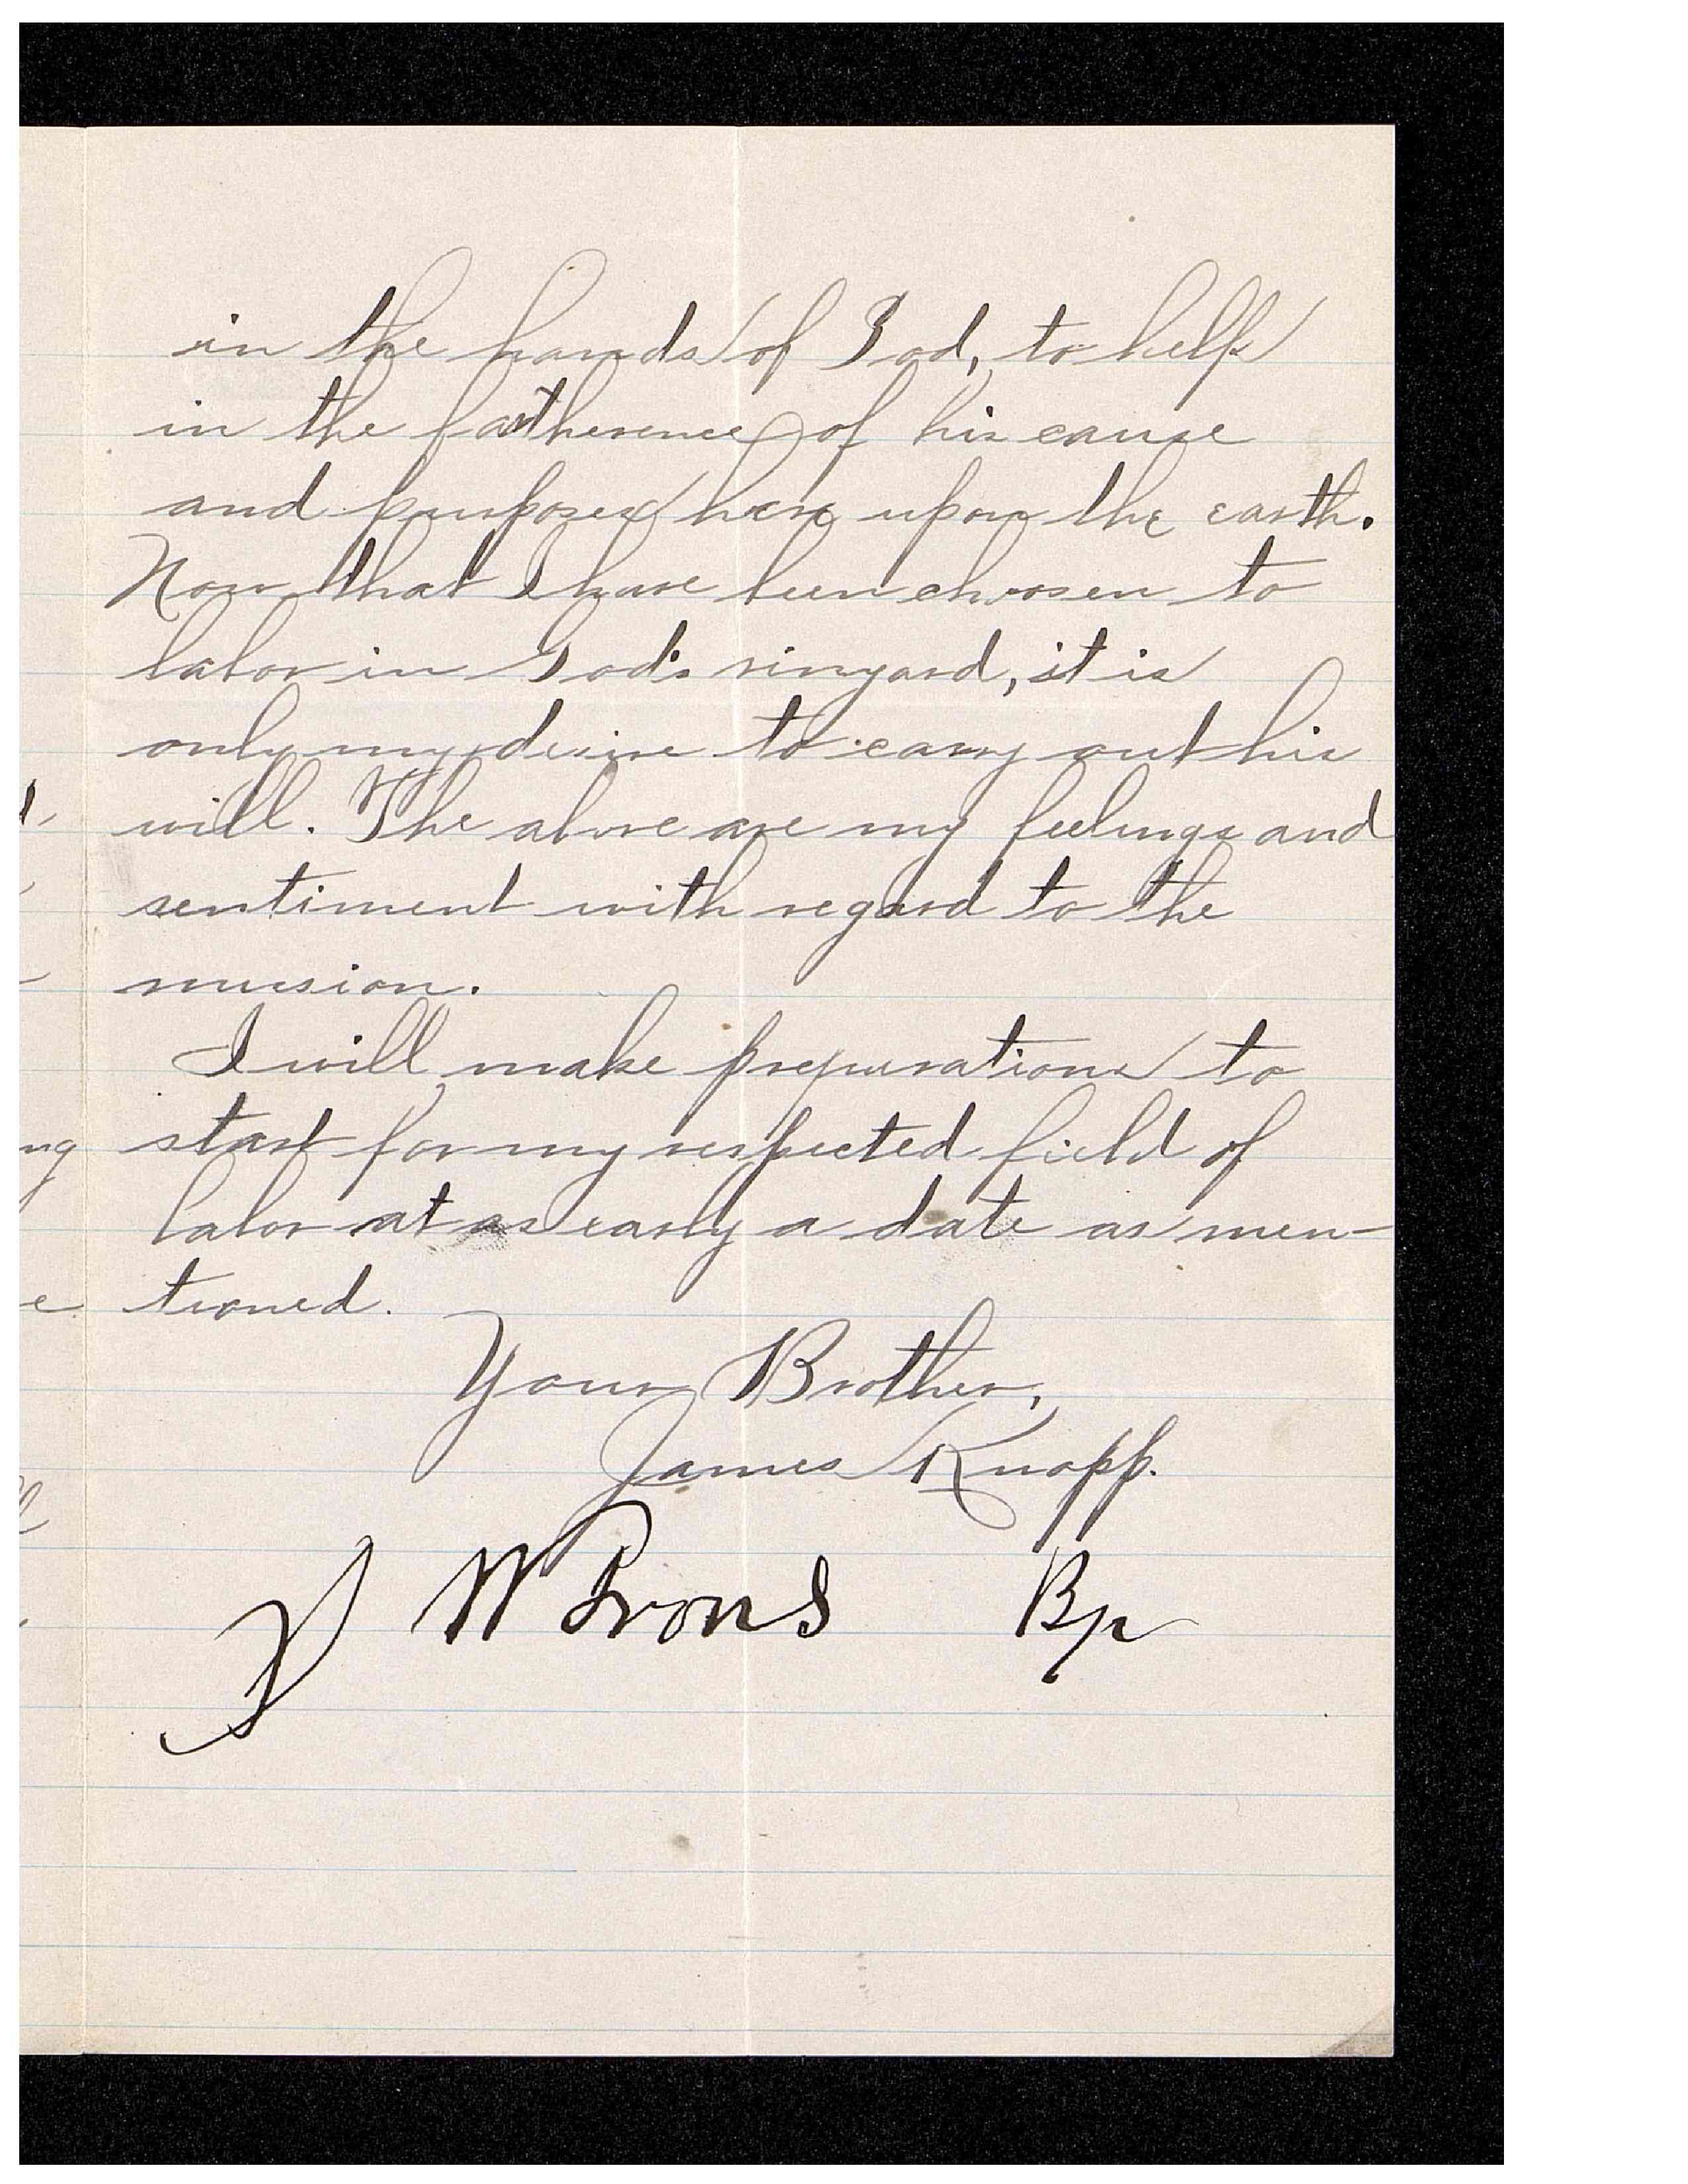 in the hands of God, to help
in the fartherence of his cause
and purposes here upon the earth.
Now that I have been chosen to
labor in God's vinyard, it is
only my desire to carry out his
will. The above are my feelings and
sentiment with regard to the
mission.
I will make preparations to
start for my respected field of
labor at as early a date as men-
tioned.
Your Brother,
James Knapp.
J W Irons Bp